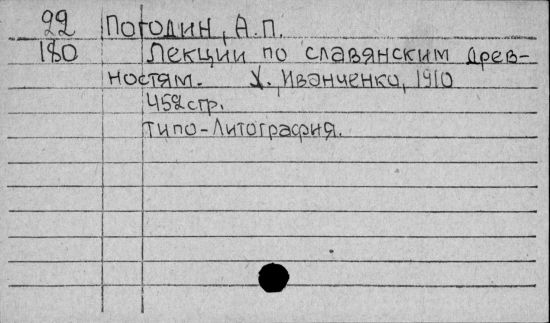 22 Погодин, А.П.
180 Лекции по славянским древ-
ностям. Х., Иванченко, 1910
452стр.
типо-Литография.